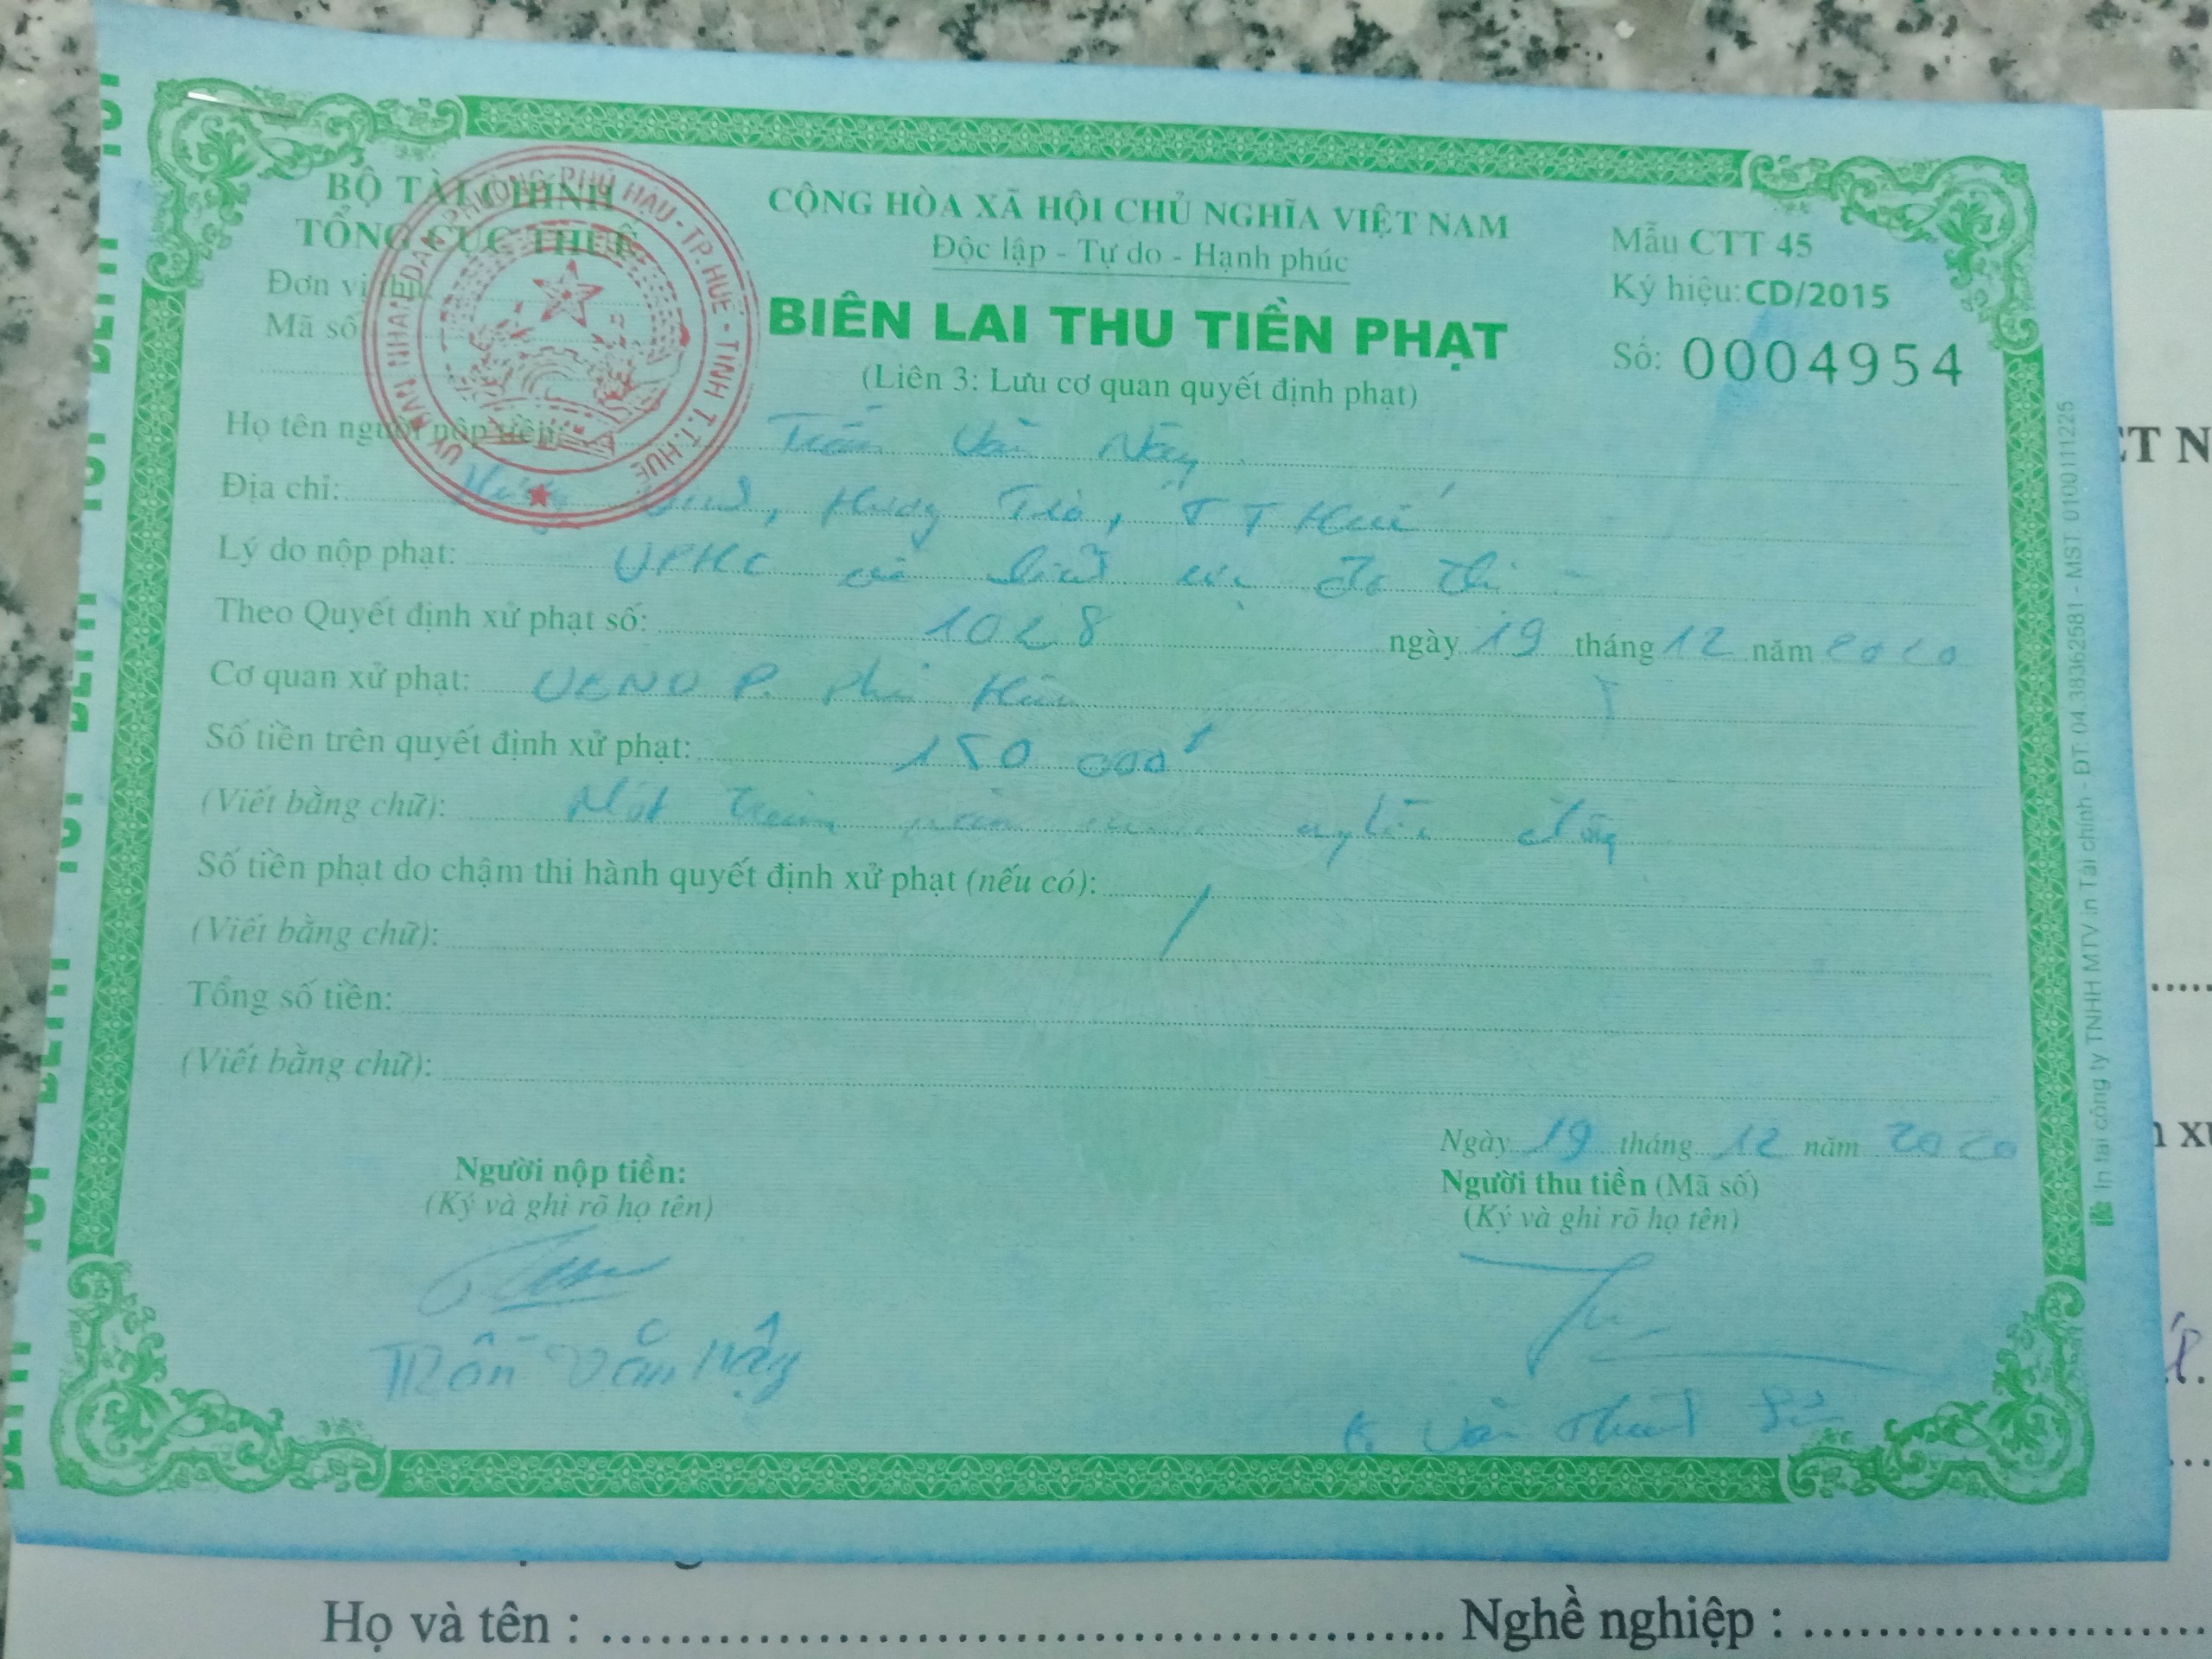 BỘ TÀI CHÍNH
TỔNG CỤC THUẾ
Đơn vị thu:
Mã số
ỦY BAN NHÂN DÂN PHƯỜNG PHÚ HẬU - TP. HUẾ - TỈNH T.T.HUẾ
CỘNG HÒA XÃ HỘI CHỦ NGHĨA VIỆT NAM
Độc lập - Tự do - Hạnh phúc
BIÊN LAI THU TIỀN PHẠT
(Liên 3: Lưu cơ quan quyết định phạt)
Mẫu CTT 45
Ký hiệu: CD/2015
Số: 0004954
Họ tên người nộp tiền: Trần Văn
Địa chỉ: Hương, Hương Trà, TT Huế
Lý do nộp phạt: VPHC đô thị
Theo Quyết định xử phạt số: 1028 ngày 19 tháng 12 năm 2020
Cơ quan xử phạt: UBND P. Phú Hậu
Số tiền trên quyết định xử phạt: 150 000đ
(Viết bằng chữ): Một trăm năm mươi nghìn đồng
Số tiền phạt do chậm thi hành quyết định xử phạt (nếu có): /
(Viết bằng chữ):
Tổng số tiền:
(Viết bằng chữ):
Ngày 19 tháng 12 năm 2020
Người nộp tiền:
(Ký và ghi rõ họ tên)
Trần Văn
Người thu tiền (Mã số)
(Ký và ghi rõ họ tên)
Văn
In tại công ty TNHH MTV in Tài chính - ĐT: 04.38362581 - MST 0100111225
ẾT N
n x
Họ và tên : Nghề nghiệp :